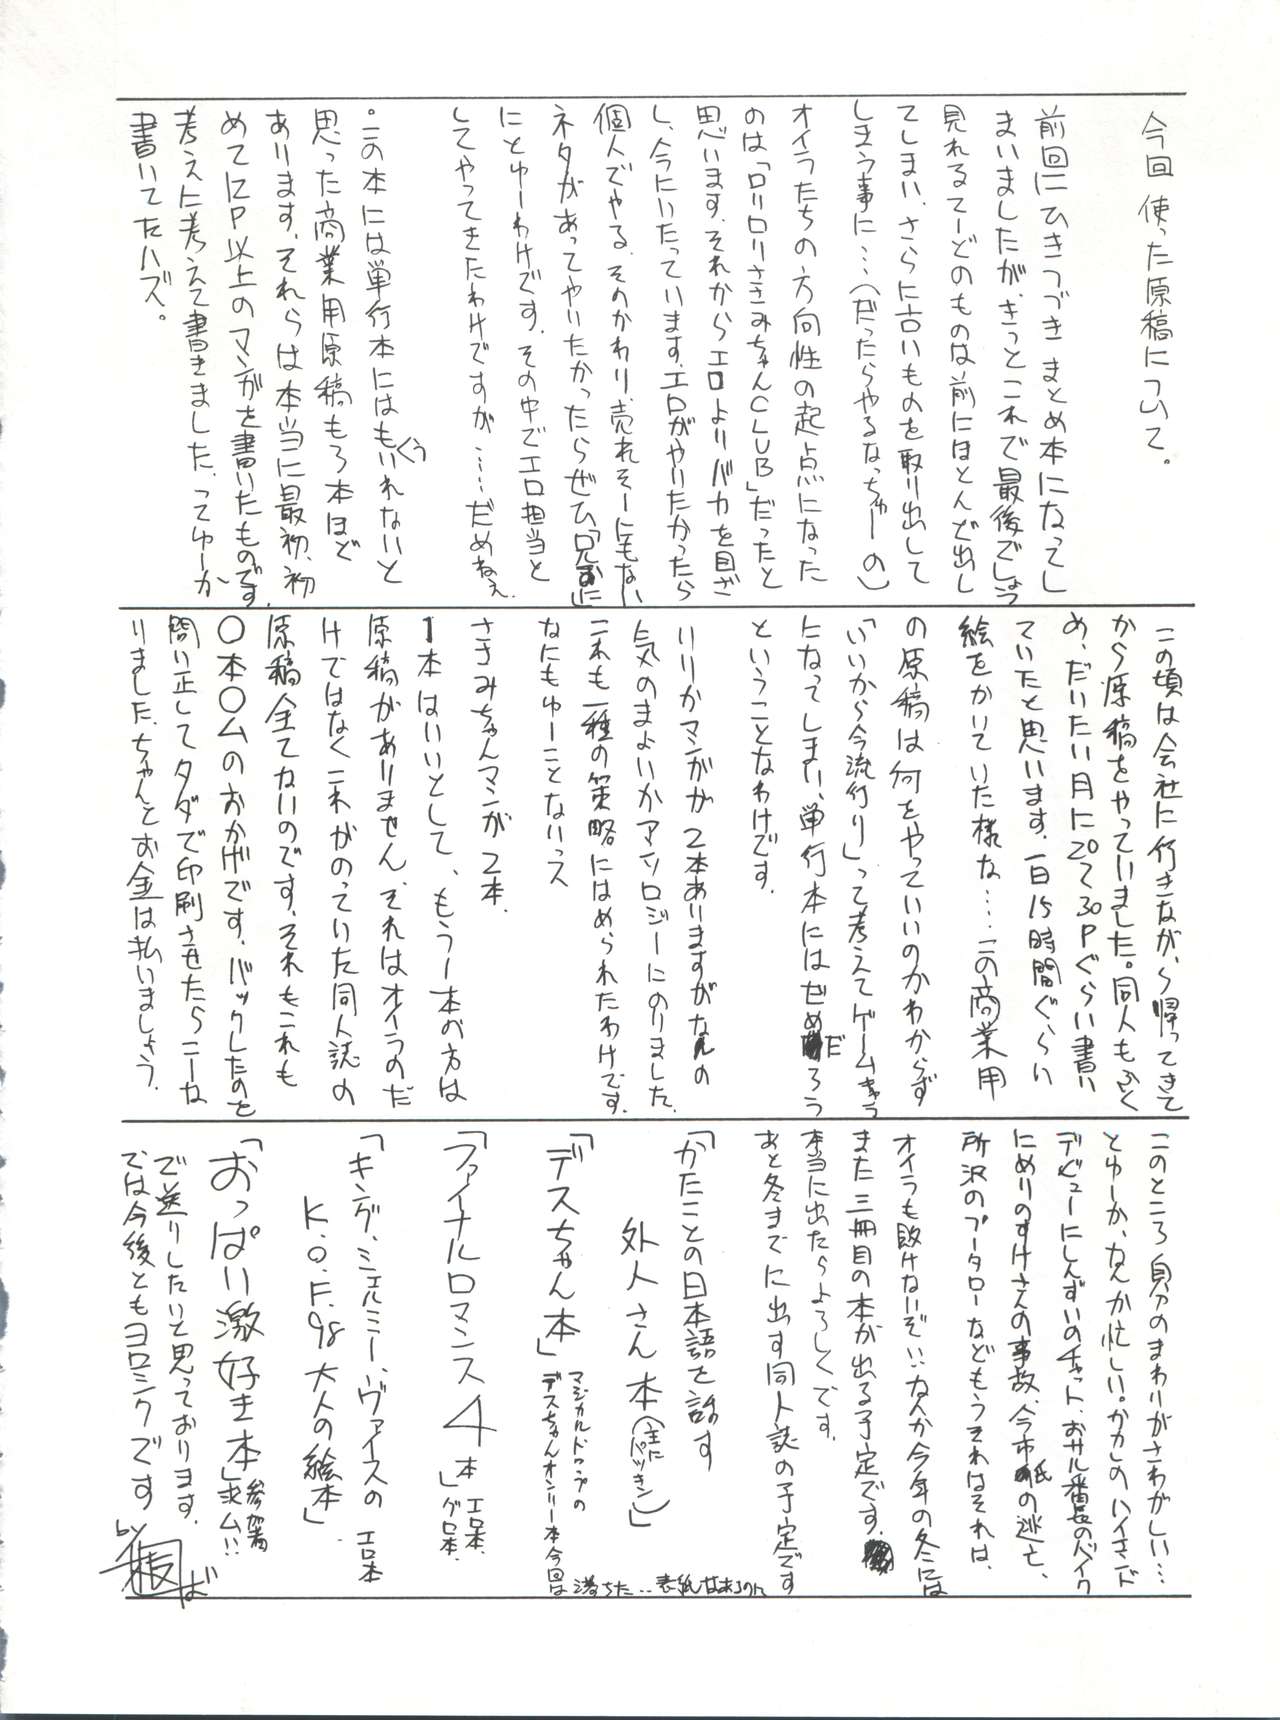 今回使った原稿について。
前回にひきつづきまとめ本になってし
まいましたが、きっとこれで最後でしょう
見れるてーどのものは前にほとんど出し
てしまい、さらに古いものを取り出して
しまう事に…(だったらやるなっちゅーの)
オイラたちの方向性の起点になった
のは「ロリロリささみちゃんCLUB」だったと
思います。それからエロよりバカを目ざ
し、今にいたっています。エロがやりたかったら
個人でやる、そのかわり、売れそーにもない
ネタがあってやりたかったらぜひ
にとゆーわけです。その中でエロ担当と
してやってきたわけですが……だめねぇ
。この本には単行本にはもういれないと
思った商業用原稿も3本ほど
あります。それらは本当に最初、初
めて12P以上のマンガを書いたものです。
考えに考えて書きました、ってゆーか
書いてたハズ。
この頃は会社に行きながら帰ってきて
から原稿をやっていました。同人もふく
め、だいたい月に20〜30Pぐらい書い
ていたと思います。一日15時間ぐらい
絵をかいていた様な…。この商業用
の原稿は何をやっていいのかわからず
「いいから今流行り」って考えてゲームきゃら
になってしまい、単行本にはだめだろう
ということなわけです。
りりかマンガが2本ありますがなんの
気のまよいかアンソロジーにのりました
これも一種の策略にはめられたわけです。
なにもゆーことないっス
ささみちゃんマンガ2本、
1本はいいとして、もう一本の方は
原稿がありません、それはオイラのだ
けではなくこれがのっていた同人誌の
原稿全てないのです、それもこれも
〇本〇ムのおかげです。バックしたのを
問い正してタダで印刷させたらこーな
りました。ちゃんとお金は払いましょう。
このところ自分のまわりがさわがしい…
とゆーか、なんか忙しい。かカしのハイエンド
デビューにしんずいのチャット、おサル番長のバイク
にめりのすけさんの事故、今市
の逃亡、
所沢のプータローなどもうそれはそれは、
オイラも負けないぞい、なんか今年の冬には
また三冊目の本が出る予定です。
本当に出たらよろしくです。
あと冬までに出す同人誌の予定です
「かたことの日本語を話す
外人さん本(主にパツキン)」
「デスちゃん本」マジカルドロップの
デスちゃんオンリー本今回は落ちた‥表紙
「ファイナルロマンス4本」エロ本、
グロ本、
「キング、シェルミー、ヴァイスの
K.O.F.98大人の絵本」エロ本
「おっぱい激好き本」参加者
求ム!!
で送りしたいと思っております。
では今後ともヨロシクです
by